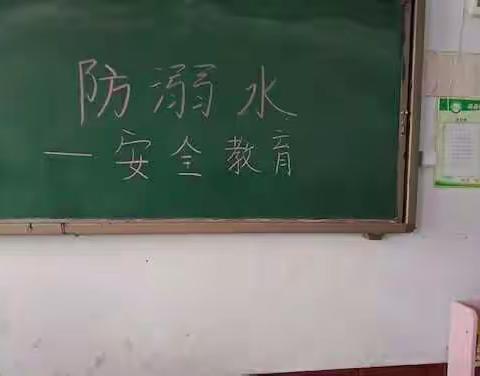 防溺水
一安全教育